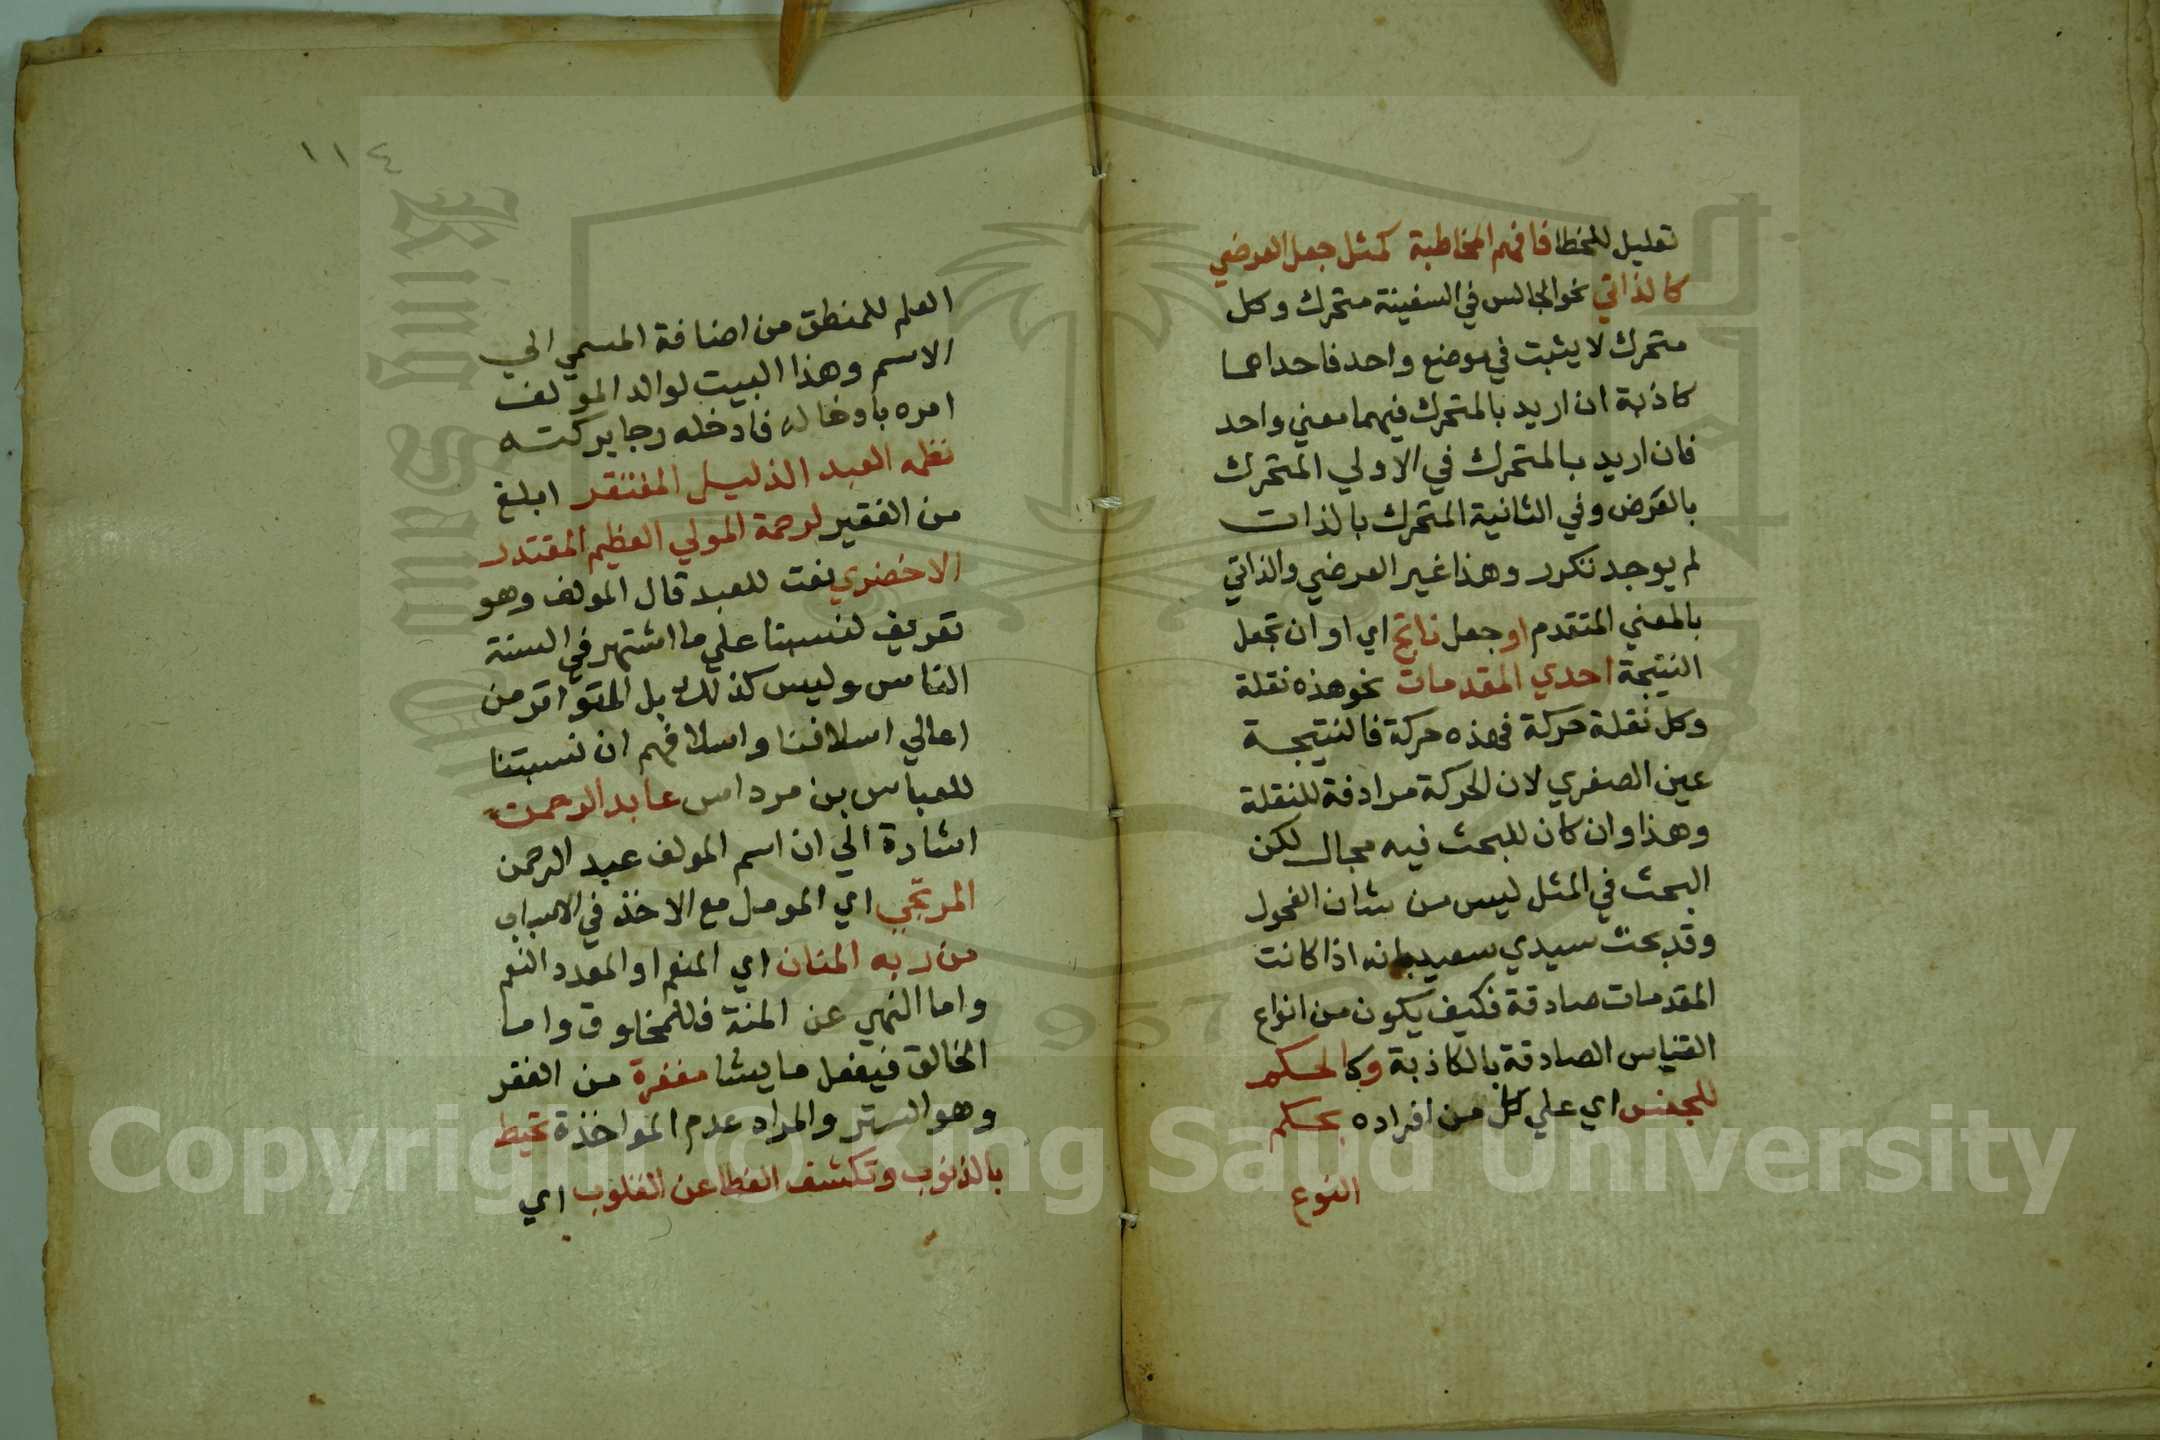 تعليل للخطا فافهم المخاطبة كمثل جعل العرضي
كالذاتي نحو الجالس في السفينة متحرك وكل
متحرك لا يثبت في موضع واحد فاحداهما
كاذبة ان اريد بالمتحرك فيهما معني واحد
فان اريد بالمتحرك في الاولي المتحرك
بالعرض وفي الثانية المتحرك بالذات
لم يوجد تكرر وهذا غير العرضي والذاتي
بالمعني المتقدم او جعل ناتج اي او ان تجعل
النتيجة احدي المقدمات نحو هذه نقلة
وكل نقلة حركة فهذه حركة فالنتيجة
عين الصغري لان الحركة مرادفة للنقلة
وهذا وان كان للبحث فيه مجال لكن
البحث في المثل ليس من شان الفحول
وقد بحث سيدي سعيد بانه اذا كانت
المقدمات صادقة فكيف يكون من انواع
القياس الصادقة بالكاذبة وكالحكم
للجنس اي علي كل من افراده بحكم
النوع
١١٤
العلم للمنطق من اضافة المسمي الي
الاسم وهذا البيت لوالد المولف
امره بادخاله فادخله رجا بركته
نظمه العبد الذليل المفتقر ابلغ
من الفقير لرحمة المولي العظيم المقتدر
الاخضري نعت للعبد قال المولف وهو
تعريف لنسبنا علي ما اشتهر في السنة
الناس وليس كذلك بل المتواتر من
اعالي اسلافنا واسلافهم ان نسبتنا
للعباس بن مرداس عابد الرحمن
اشارة الي ان اسم المولف عبد الرحمن
المرتجي اي المومل مع الاخذ في الاسباب
من ربه المنان اي المنعم او المعدد النعم
واما النهي عن المنة فللمخلوق واما
الخالق فيفعل ما يشا مغفرة من الغفر
وهو الستر والمراد عدم المواخذة تحيط
بالذنوب وتكشف الغطا عن القلوب اي
King Saud University
1957
Copyright © King Saud University